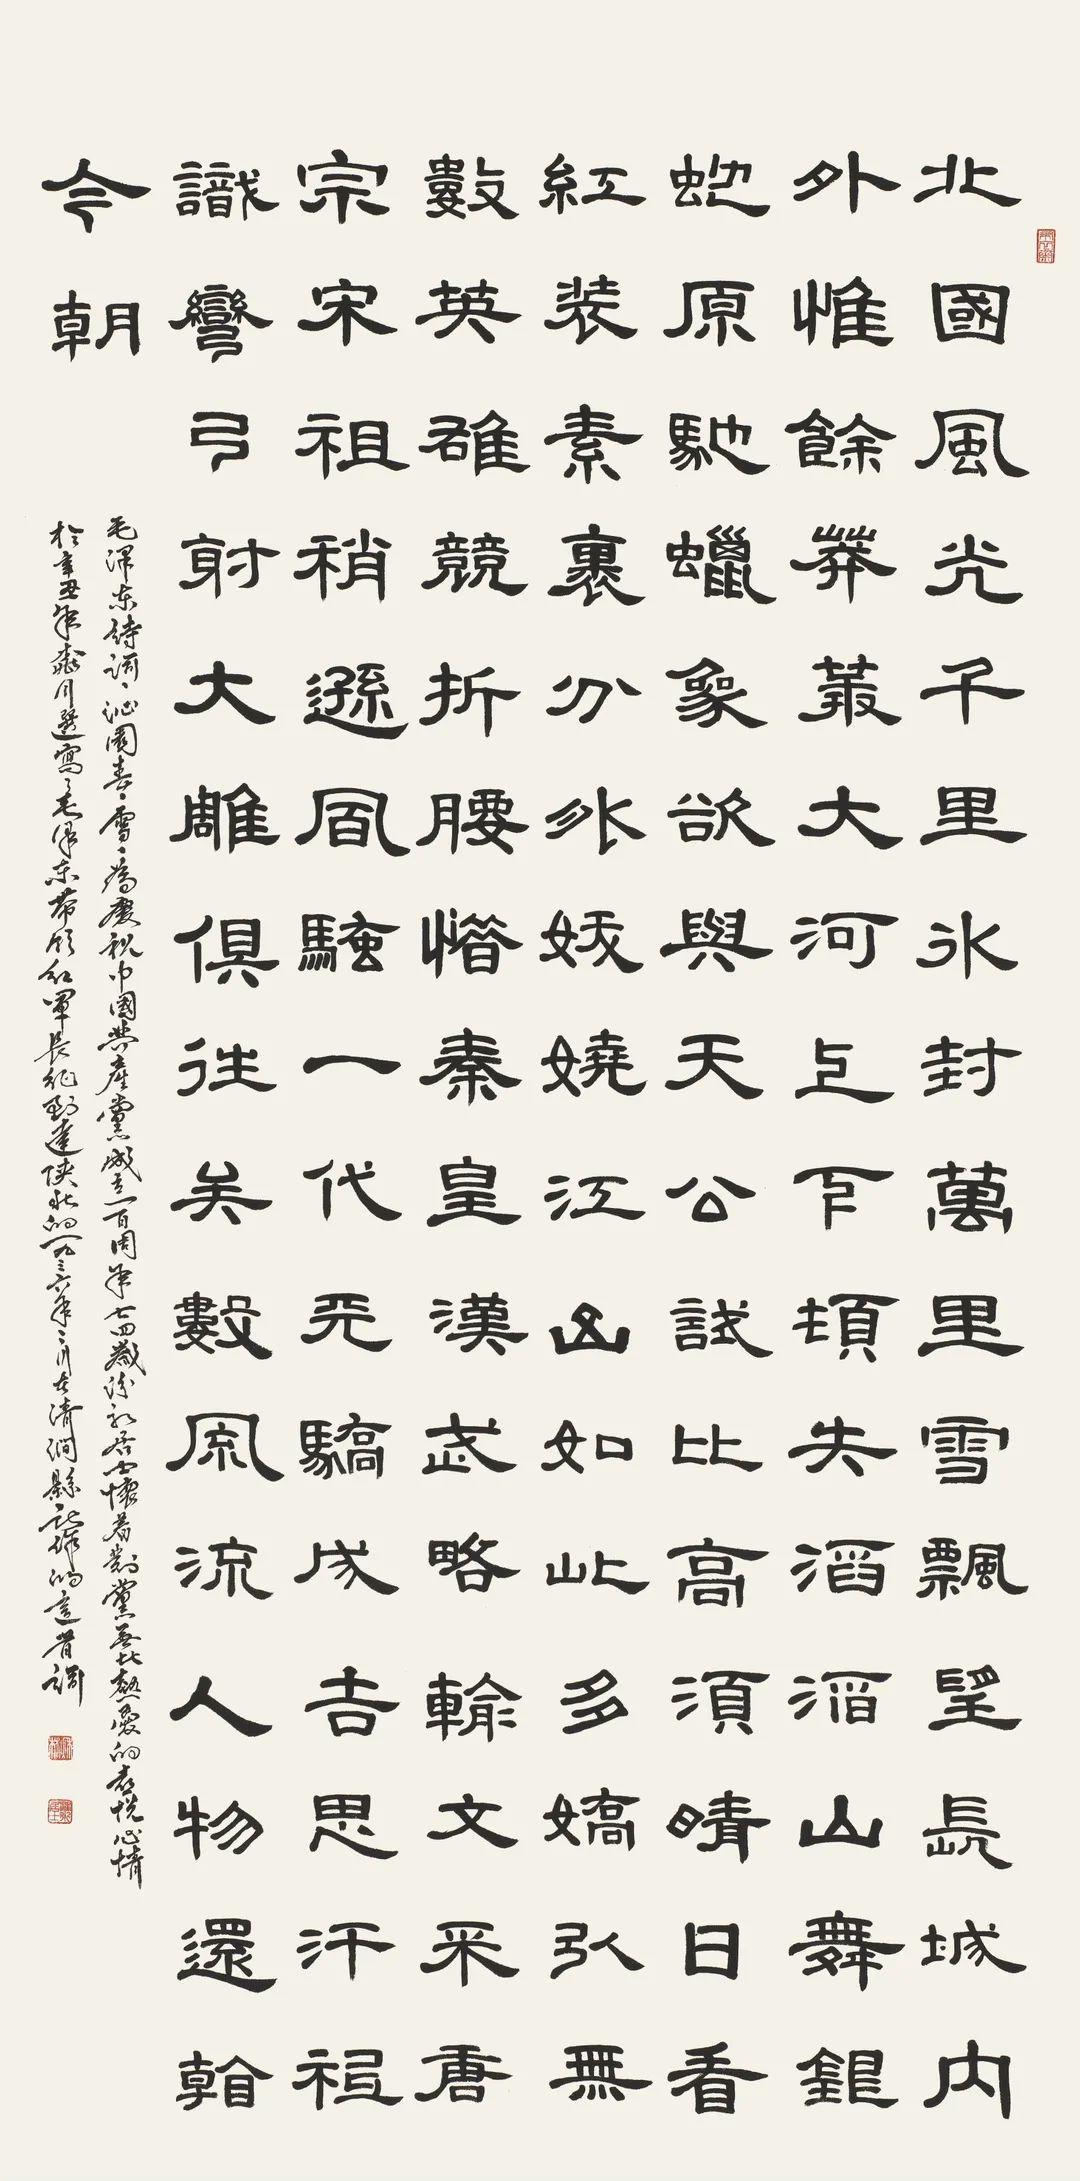 北國風光千里冰封萬里雪飄望長城內
外惟餘莽莽大河上下頓失滔滔山舞銀
蛇原馳蠟象欲與天公試比高須晴日看
紅裝素裹分外妖嬈江山如此多嬌引無
數英雄競折腰惜秦皇漢武略輸文采唐
宗宋祖稍遜風騷一代天驕成吉思汗祗
識彎弓射大雕俱往矣數風流人物還看
今朝
毛澤東詩詞沁園春雪為慶祝中國共產黨成立一百周年七四歲懷着對黨無比熱愛的喜悅心情
於辛丑年月選寫了毛澤東帶領紅軍長征到達陝北的一九三六年二月在清澗縣所作的這首詞